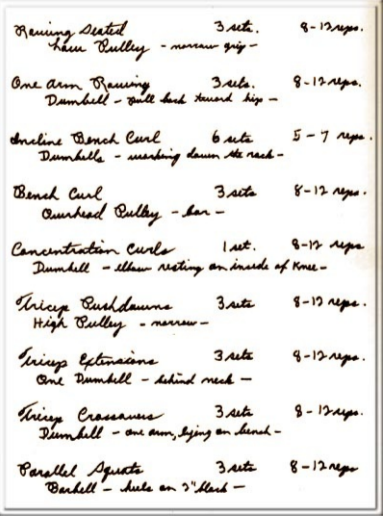 Rowing Seated 3 sets. 8-12 reps.
Low Pulley - narrow grip -
One Arm Rowing 3 sets. 8-12 reps.
Dumbell - pull back toward hip -
Incline Bench Curl 6 sets 5-7 reps.
Dumbells - working down the rack -
Bench Curl 3 sets 8-12 reps.
Overhead Pulley - bar -
Concentration Curls 1 set. 8-12 reps
Dumbell - elbow resting on inside of Knee -
Tricep Pushdowns 3 sets 8-12 reps.
High Pulley - narrow -
Tricep Extensions 3 sets 8-12 reps.
One Dumbell - behind neck -
Tricep Crossovers 3 sets 8-12 reps.
Dumbell - one arm, lying on bench -
Parallel Squats 3 sets 8-12 reps
Barbell - heels on 2" block -